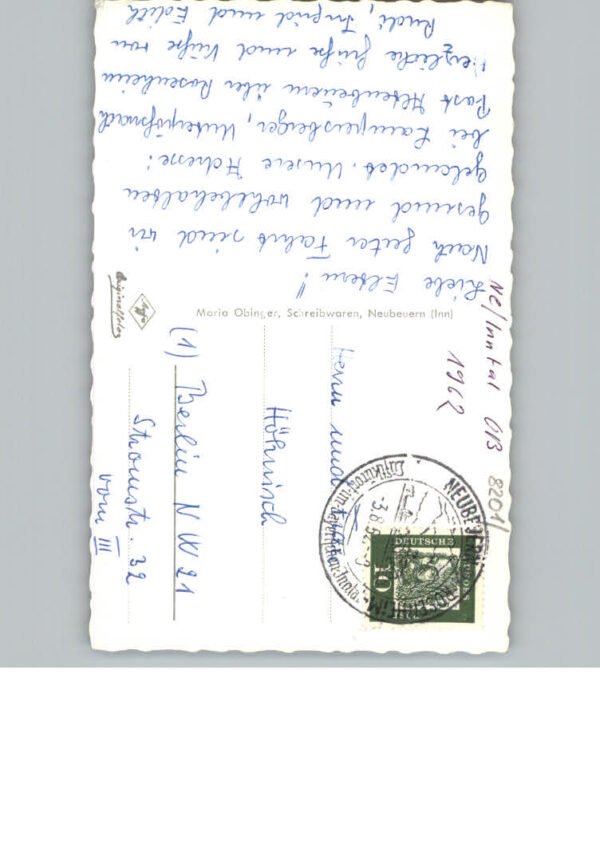 Liebe Eltern!
Nach guter Fahrt sind wir
gesund und wohlbehalten
gelandet. Unsere Adresse:
bei Lampersberger,
Post Altenbeuern über Rosenheim
Herzliche Grüße und Küsse von
Rudi, Ingrid und Edith
Maria Obinger, Schreibwaren, Neubeuern (Inn)
Agfa
Originalfoto
Herrn und
Höhnisch
(1) Berlin N W 21
Stromstr. 32
vorn III
NEUBEUERN
ROSENHEIM
Luftkurort im
DEUTSCHE
BUNDESPOST
10
8201/
Ne/Inntal OB
1962